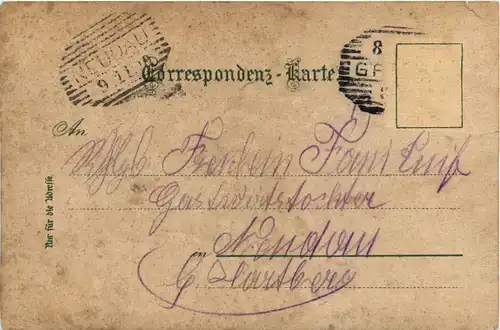 NEUDAU
9 11
8
GRA
Correspondenz-Karte
An
Wohlgb. Fräulein Fani
Gastwirtstochter
in Neudau
b. Hartberg
Nur für die Adresse.